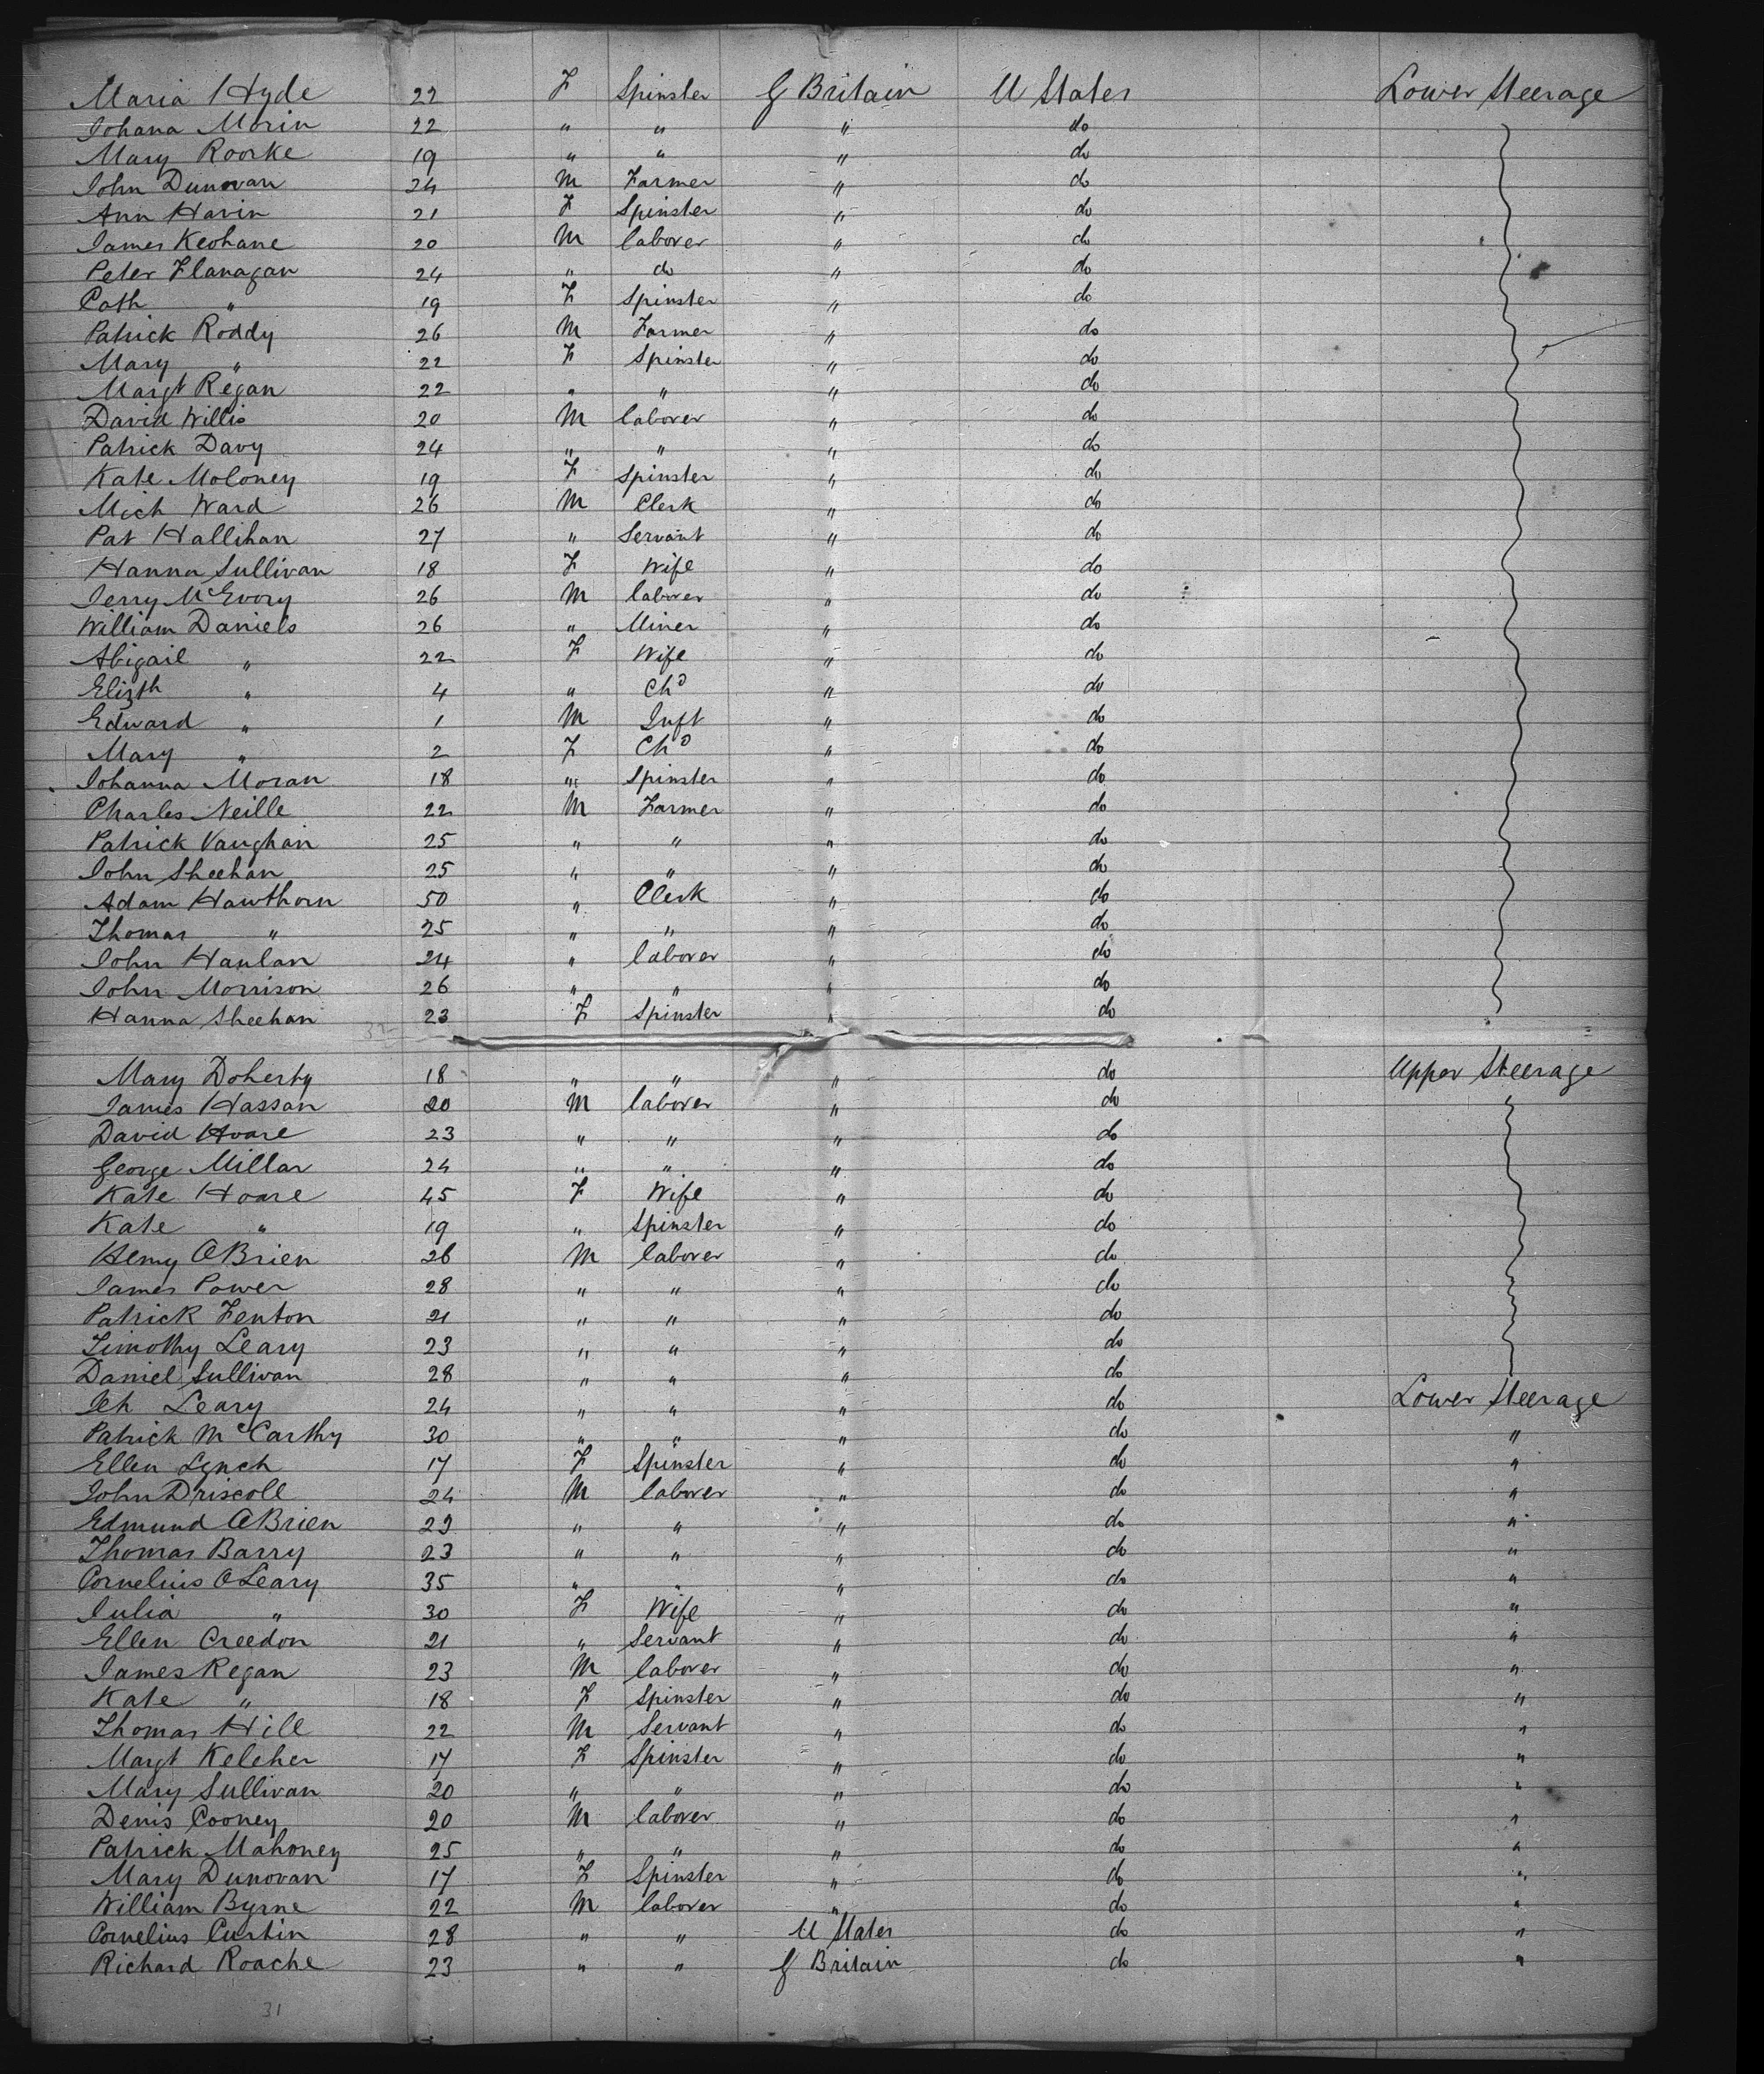 Maria Hyde 22 F Spinster G Britain U States Lower Steerage
Johana Morin 22 " " " do
Mary Roorke 19 " " " do
John Dunovan 24 M Farmer " do
Ann Harin 21 F Spinster " do
James Keohane 20 M laborer " do
Peter Flanagan 24 " do " do
Cath " 19 F Spinster " do
Patrick Roddy 26 M Farmer " do
Mary " 22 F Spinster " do
Margt Regan 22 " " " do
David Willis 20 M laborer " do
Patrick Davy 24 " " " do
Kate Moloney 19 F Spinster " do
Mich Ward 26 M Clerk " do
Pat Hallihan 27 " Servant " do
Hanna Sullivan 18 F Wife " do
Jerry McEvory 26 M laborer " do
William Daniels 26 " Miner " do
Abigail " 22 F Wife " do
Elizth " 4 " Chd " do
Edward " 1 M Inft " do
Mary " 2 F Chd " do
Johanna Moran 18 " Spinster " do
Charles Neille 22 M Farmer " do
Patrick Vaughan 25 " " " do
John Sheehan 25 " " " do
Adam Hawthorn 50 " Clerk " do
Thomas " 25 " " " do
John Hanlan 24 " laborer " do
John Morrison 26 " " " do
Hanna Sheehan 23 F Spinster " do
32
Mary Doherty 18 " " " do Upper Steerage
James Hassan 20 M laborer " do
David Hoare 23 " " " do
George Millar 24 " " " do
Kate Hoare 45 F Wife " do
Kate " 19 " Spinster " do
Henry OBrien 26 M laborer " do
James Power 28 " " " do
Patrick Fenton 21 " " " do
Timothy Leary 23 " " " do
Daniel Sullivan 28 " " " do
Jeh Leary 24 " " " do Lower Steerage
Patrick McCarthy 30 " " " do "
Ellen Lynch 17 F Spinster " do "
John Driscoll 24 M laborer " do "
Edmund OBrien 23 " " " do "
Thomas Barry 23 " " " do "
Cornelius OLeary 35 " " " do "
Julia " 30 F Wife " do "
Ellen Creedon 21 " Servant " do "
James Regan 23 M laborer " do "
Kate " 18 F Spinster " do "
Thomas Hill 22 M Servant " do "
Margt Keleher 17 F Spinster " do "
Mary Sullivan 20 " " " do "
Denis Cooney 20 M laborer " do "
Patrick Mahoney 25 " " " do "
Mary Dunovan 17 F Spinster " do "
William Byrne 22 M laborer " do "
Cornelius Curtin 28 " " U States do "
Richard Roache 23 " " G Britain do "
31